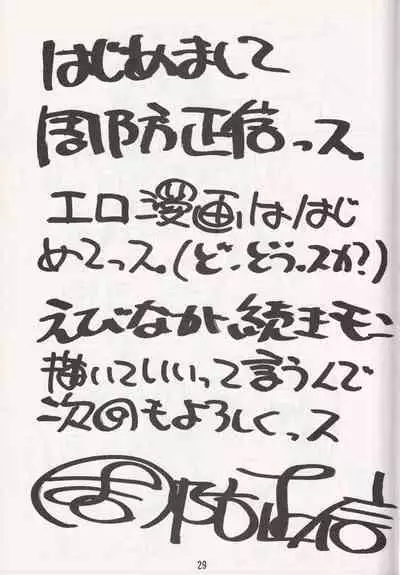 はじめまして
周防正信っス
エロ漫画はほはじ
めてっス。(ど、どうっスか?)
えびなが続きモン
描いていいって言うんで
次回もよろしくっス
周防正信
29